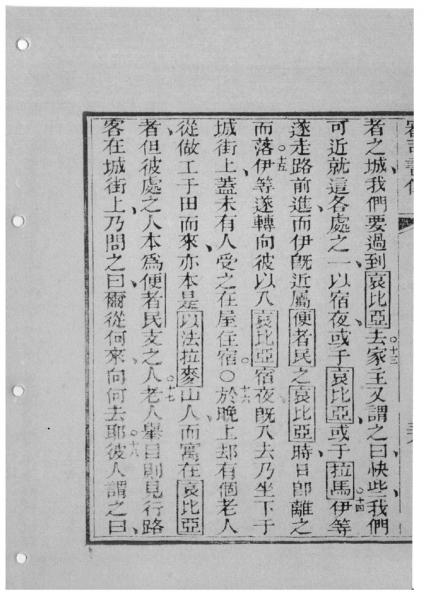 者之城我們要過到哀比亞。十三去家主又謂之曰快些、我們
可近就這各處之一以宿夜、或于哀比亞、或于拉馬。十四伊等
遂走路前進、而伊既近屬便者民之哀比亞時、日卽離之
而落。十五伊等遂轉向彼以入哀比亞宿夜既入去乃坐下于
城街上、蓋未有人受之在屋住宿○十六於晚上却有個老人
從做工于田而來、亦本是以法拉麥山人而寓在哀比亞
者、但彼處之人本爲便者民支之人。十七老人舉目則見行路
客在城街上、乃問之曰、爾從何來、向何去耶。十八彼人謂之曰、